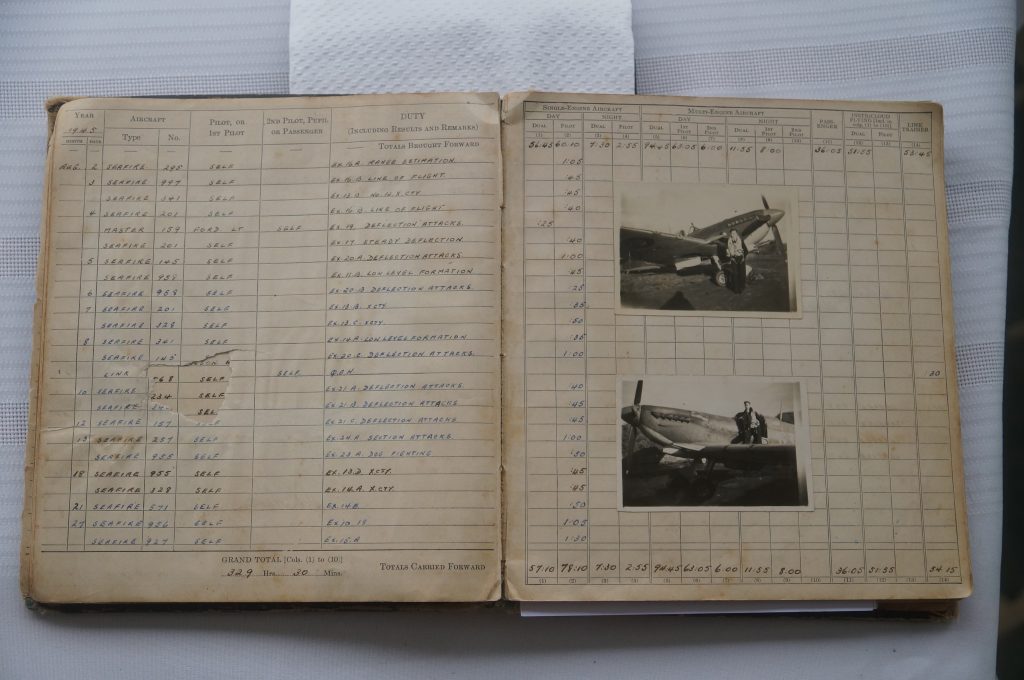 YEAR AIRCRAFT PILOT, OR 1ST PILOT 2ND PILOT, PUPIL OR PASSENGER DUTY (INCLUDING RESULTS AND REMARKS)
1945
MONTH DATE Type No.
TOTALS BROUGHT FORWARD
AUG. 2 SEAFIRE 295 SELF EX.16A RANGE ESTIMATION.
3 SEAFIRE 997 SELF EX.16.B LINE OF FLIGHT.
SEAFIRE 341 SELF EX.13.B No.12 X.CTY
4 SEAFIRE 201 SELF EX.16 B LINE OF FLIGHT
MASTER 159 FORD LT SELF EX.19. DEFLECTION ATTACKS.
SEAFIRE 201 SELF EX.17 STEADY DEFLECTION.
5 SEAFIRE 145 SELF EX.20.A DEFLECTION ATTACKS
SEAFIRE 958 SELF EX.11.B LOW LEVEL FORMATION
6 SEAFIRE 958 SELF EX.20.B DEFLECTION ATTACKS.
7 SEAFIRE 201 SELF EX.13.B. X.CTY.
SEAFIRE 328 SELF EX.13.C. X.CTY.
8 SEAFIRE 341 SELF EX.14.A. LOW LEVEL FORMATION
SEAFIRE 145 EX.20.C. DEFLECTION ATTACKS.
LINK SELF SELF
10 SEAFIRE 234 SELF EX.21.A. DEFLECTION ATTACKS.
SEAFIRE SELF EX.21.B DEFLECTION ATTACKS
12 SEAFIRE 157 SELF EX.21.C. DEFLECTION ATTACKS
13 SEAFIRE 257 SELF EX.24.A SECTION ATTACKS.
SEAFIRE 955 SELF EX.23.A DOG FIGHTING
18 SEAFIRE 955 SELF EX.13.D X.CTY.
SEAFIRE 328 SELF EX.14.A. X.CTY
21 SEAFIRE 571 SELF EX.14B.
27 SEAFIRE 956 SELF EX.10.18
SEAFIRE 927 SELF EX.15.A
GRAND TOTAL [Cols. (1) to (10)]
329 Hrs. 30 Mins.
TOTALS CARRIED FORWARD
SINGLE-ENGINE AIRCRAFT MULTI-ENGINE AIRCRAFT PASSENGER LINK TRAINER
DAY NIGHT DAY NIGHT
DUAL PILOT DUAL PILOT DUAL 1ST PILOT 2ND PILOT DUAL 1ST PILOT 2ND PILOT DUAL PILOT
(1) (2) (3) (4) (5) (6) (7) (8) (9) (10)
56.45 60.10 7:30 2:55 94.45 63.05 6:00 11:55 8:00 36:05 51:55 53:45
1:05
:45
:45
:40
:25
:40
1:00
:45
:25
:35
:50
:35
1:00
30
:40
:45
:45
1:00
:50
:45
:45
:50
1:05
1:30
57:10 78:10 7:30 2:55 94.45 63:05 6:00 11:55 8:00 36:05 51:55 54.15
(1) (2) (3) (4) (5) (6) (7) (8) (9) (10) (11) (12) (13) (14)